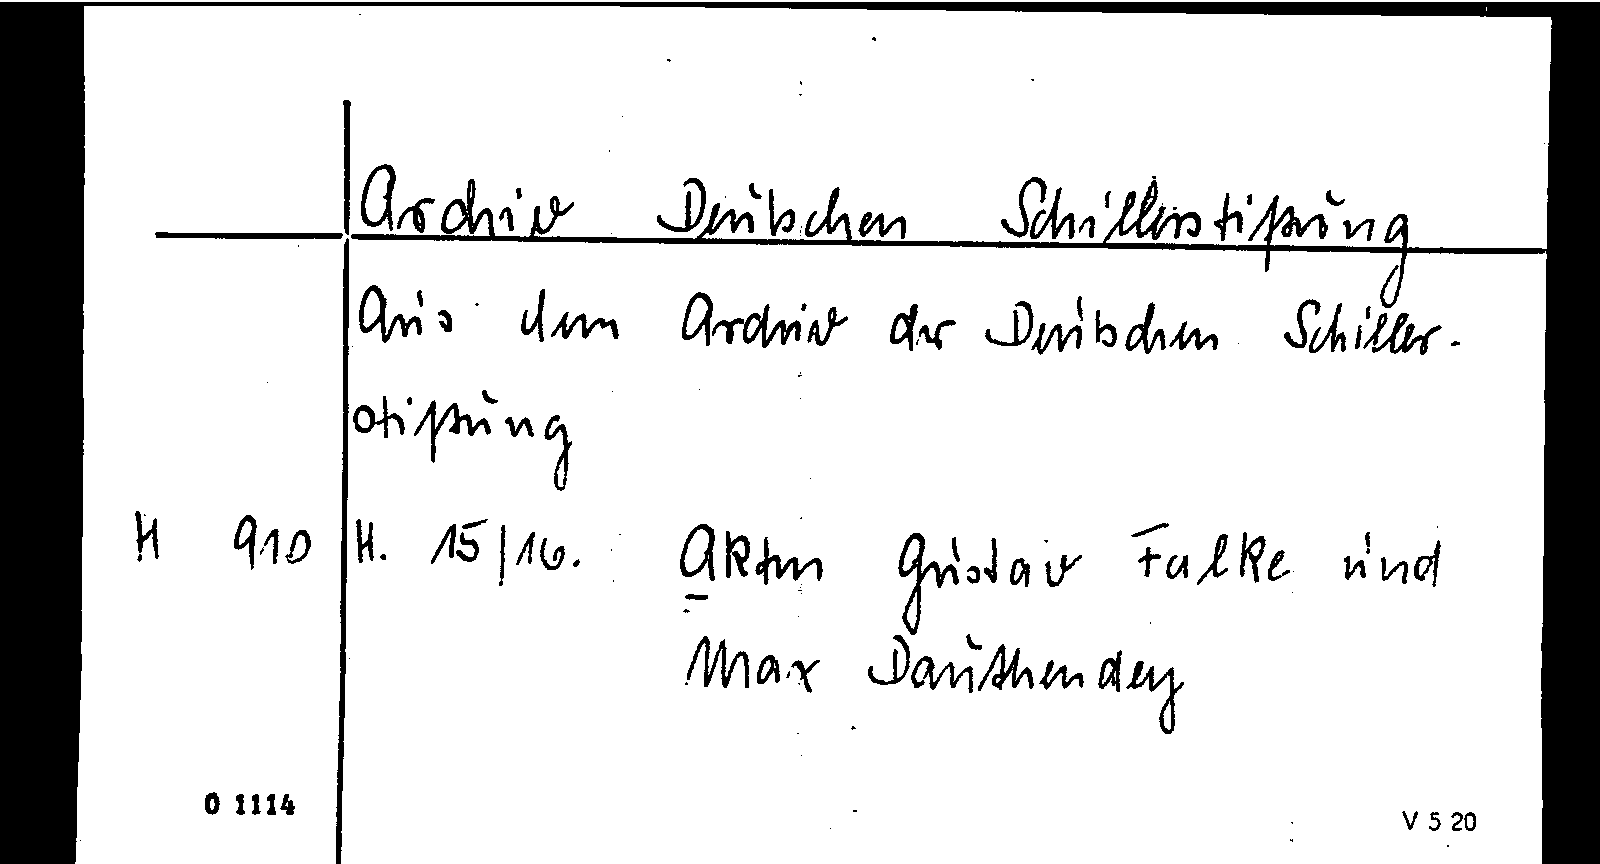 Archiv Deutschen Schillerstiftung
Aus dem Archiv der Deutschen Schiller-
stiftung
H 910 H. 15/16. Akten Gustav Falke und
Max Dauthendey
0 1114
V 5 20